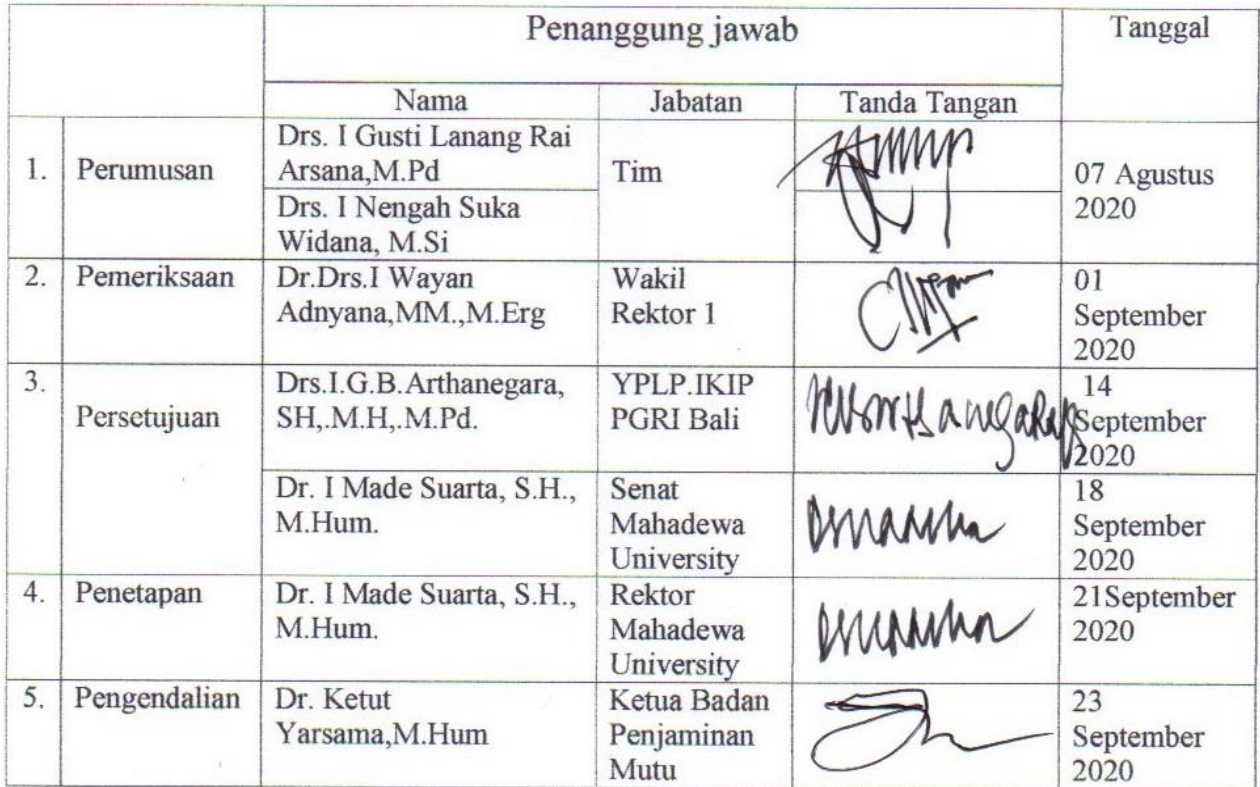 Penanggung jawab
Tanggal
Nama
Jabatan
Tanda Tangan
1.
Perumusan
Drs. I Gusti Lanang Rai
Arsana,M.Pd
Tim
07 Agustus
2020
Drs. I Nengah Suka
Widana, M.Si
2.
Pemeriksaan
Dr.Drs.I Wayan
Adnyana,MM.,M.Erg
Wakil
Rektor 1
01
September
2020
3.
Persetujuan
Drs.I.G.B.Arthanegara,
SH,.M.H,.M.Pd.
YPLP.IKIP
PGRI Bali
14
September
2020
Dr. I Made Suarta, S.H.,
M.Hum.
Senat
Mahadewa
University
18
September
2020
4.
Penetapan
Dr. I Made Suarta, S.H.,
M.Hum.
Rektor
Mahadewa
University
21September
2020
5.
Pengendalian
Dr. Ketut
Yarsama,M.Hum
Ketua Badan
Penjaminan
Mutu
23
September
2020